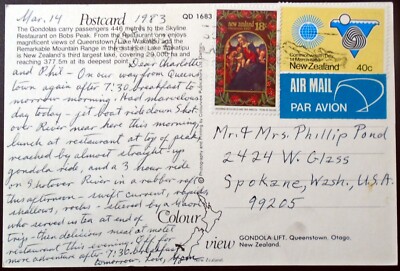 Mar. 14 1983
Postcard
QD 1683
The Gondola carry passengers 446 metres to the Skyline
Restaurant on Bobs Peak. From the Restaurant one enjoys
magnificent views of Queenstown, Lake Wakatipu and the
Remarkable Mountain Range in the distance. Lake Wakatipu
is New Zealand's third largest lake, covering 29,000 ha and
reaching 377.5m at its deepest point.
Dear Charlotte
and Phil - On our way from Queens-
town again after 7:30 breakfast to-
morrow morning. Had marvelous
day today - jet boat ride down Shot-
over River near here this morning,
lunch at restaurant at top of peak
reached by almost straight-up
gondola ride, and a 3 hour ride
on Shotover River in a rubber raft
this afternoon - swift current, rapids,
shallows, rocks - steered by a Maori
who served us tea at end of
trip - then delicious meal at motel
restaurant this evening. Off for
more adventure after 7:30 breakfast
tomorrow. Love,
new zealand 18c
New Zealand 40c
AIR MAIL
PAR AVION
Mr. & Mrs. Phillip Pond
2424 W. Glass
Spokane, Wash., U.S.A.
99205
Colour
view
GONDOLA LIFT, Queenstown, Otago,
New Zealand.